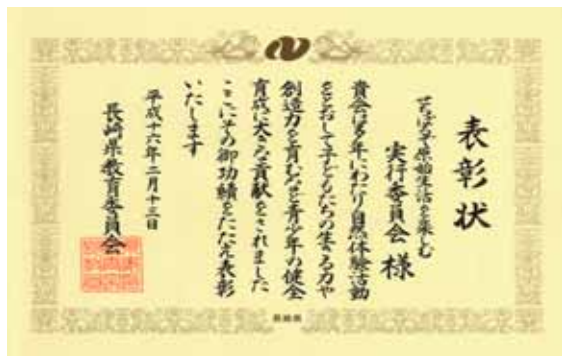 表彰状
原始生活を楽しむ
実行委員会 様
貴会は多年にわたり自然体験活動
をとおして子どもたちの生きる力や
創造力を育むなど青少年の健全
育成に大きな貢献をされました
ここにその御功績をたたえ表彰
いたします
平成十六年二月十三日
長崎県教育委員会